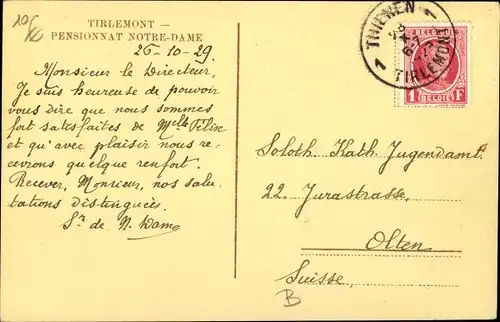 TIRLEMONT —
PENSIONNAT NOTRE-DAME
26-10-29.
Monsieur le Directeur,
Je suis heureuse de pouvoir
vous dire que nous sommes
fort satisfaites de Melle Felix
et qu'avec plaisir nous re-
cevrons quelque renfort.
Recevez, Monsieur, nos salu-
tations distinguées,
Sr de N. Dame
THIENEN
1 TIRLEMONT 1
BELGIË
1 BELGIE F
Soloth. Kath. Jugendamt.
22. Jurastrasse,
Olten
Suisse.
B